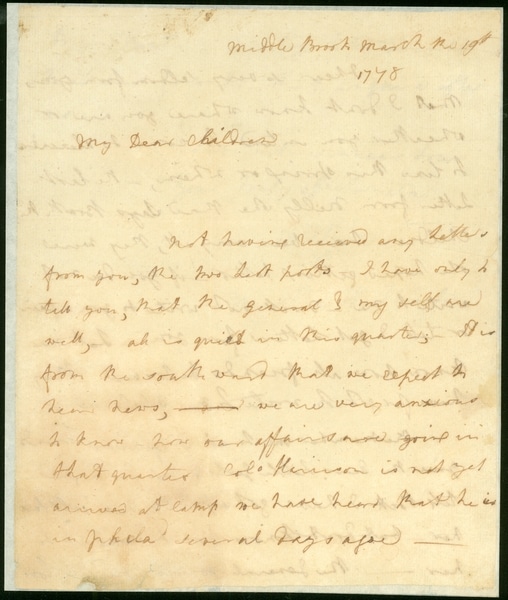 Middle Brook March the 19th
1778
My Dear Children
Not having recieved any letters
from you, the two last posts I have only to
tell you, that the general & my self are
well, all is quiet in this quarter, It is
from the southward that we expect to
hear news, —— we are very anxious
to know how our affairs are going in
that quarter Colo Harrison is not yet
arrived at camp we have heard that he is
in phila several days agoe ——